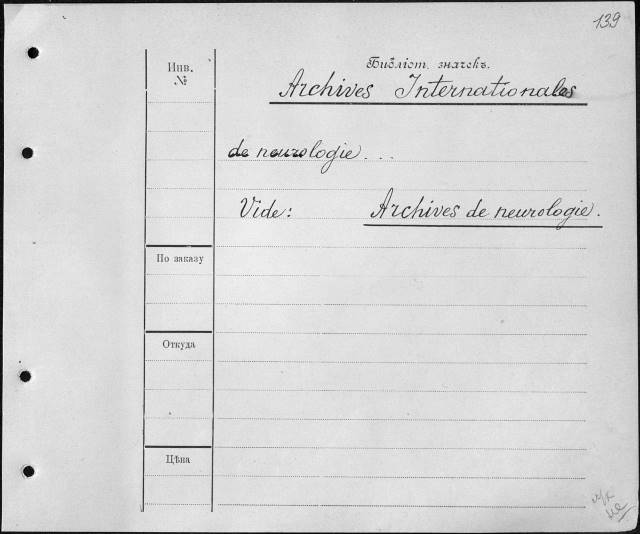 139
Инв.
№
Библіот. значекъ.
Archives Internationales
de neurologie...
Vide: Archives de neurologie.
По заказу
Откуда
Цѣна